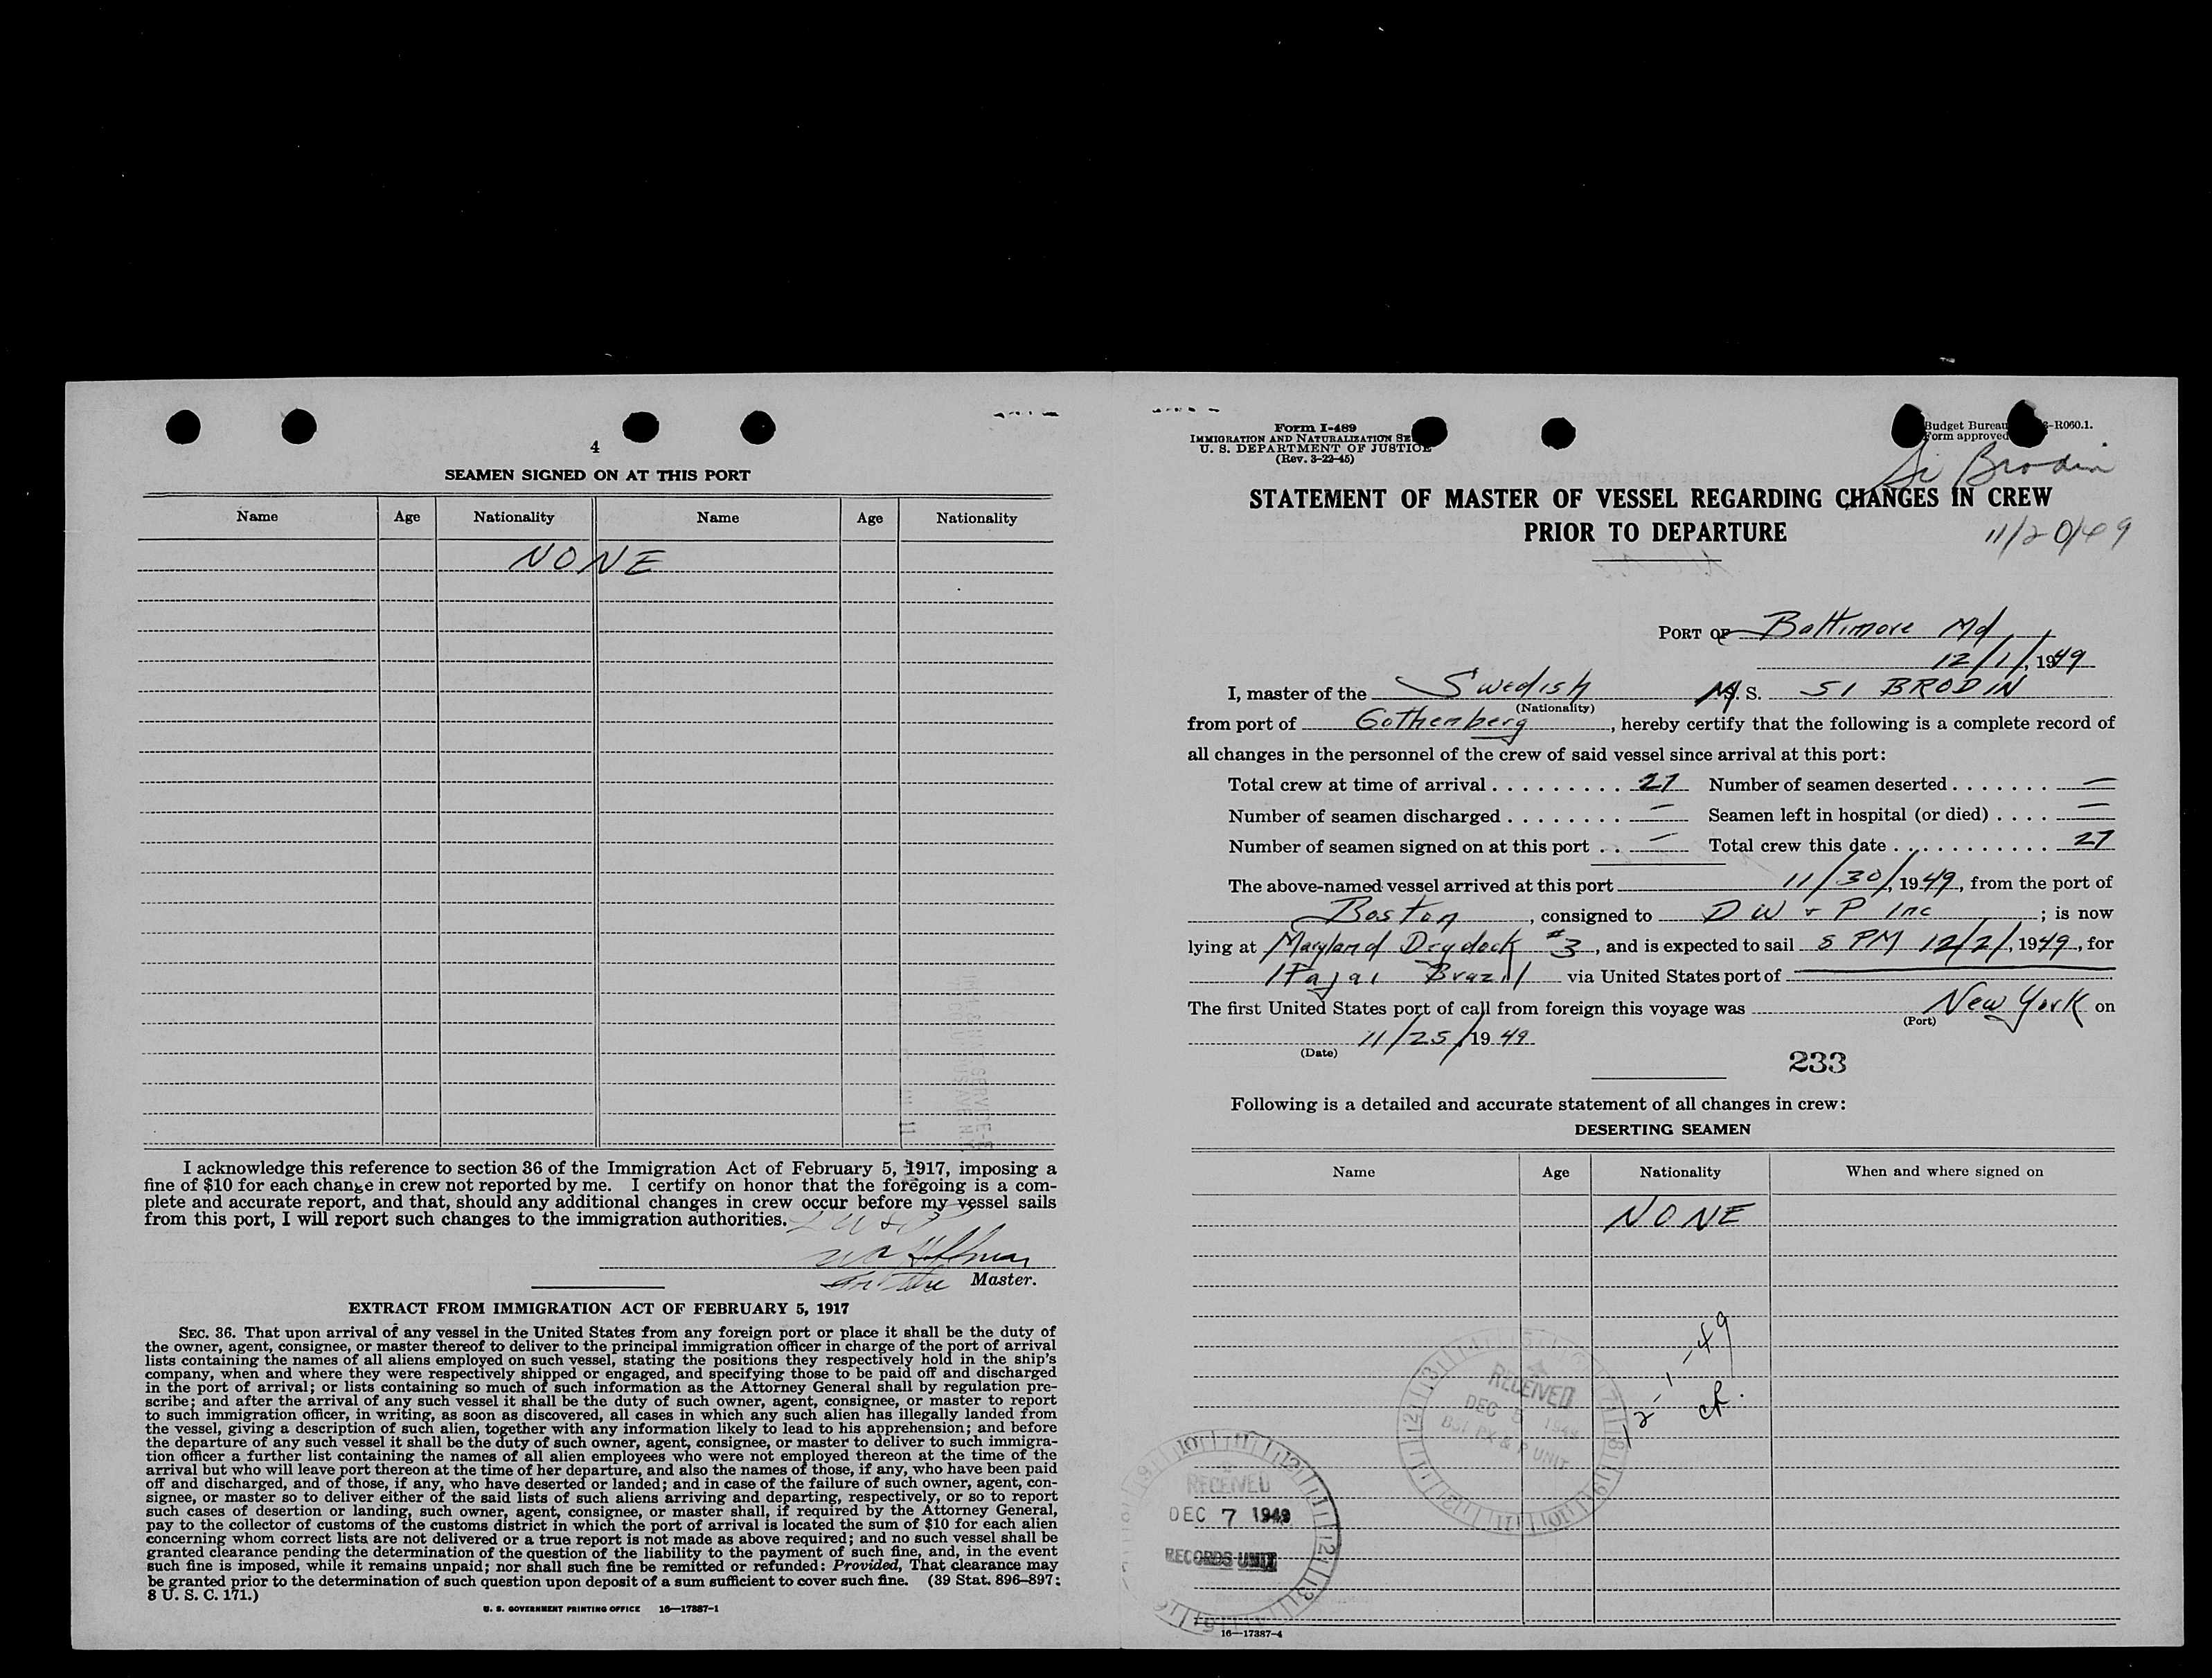 4
SEAMEN SIGNED ON AT THIS PORT
Name Age Nationality Name Age Nationality
NONE
I acknowledge this reference to section 36 of the Immigration Act of February 5, 1917, imposing a
fine of $10 for each change in crew not reported by me. I certify on honor that the foregoing is a com-
plete and accurate report, and that, should any additional changes in crew occur before my vessel sails
from this port, I will report such changes to the immigration authorities.
For the Master.
EXTRACT FROM IMMIGRATION ACT OF FEBRUARY 5, 1917
SEC. 36. That upon arrival of any vessel in the United States from any foreign port or place it shall be the duty of
the owner, agent, consignee, or master thereof to deliver to the principal immigration officer in charge of the port of arrival
lists containing the names of all aliens employed on such vessel, stating the positions they respectively hold in the ship's
company, when and where they were respectively shipped or engaged, and specifying those to be paid off and discharged
in the port of arrival; or lists containing so much of such information as the Attorney General shall by regulation pre-
scribe; and after the arrival of any such vessel it shall be the duty of such owner, agent, consignee, or master to report
to such immigration officer, in writing, as soon as discovered, all cases in which any such alien has illegally landed from
the vessel, giving a description of such alien, together with any information likely to lead to his apprehension; and before
the departure of any such vessel it shall be the duty of such owner, agent, consignee, or master to deliver to such immigra-
tion officer a further list containing the names of all alien employees who were not employed thereon at the time of the
arrival but who will leave port thereon at the time of her departure, and also the names of those, if any, who have been paid
off and discharged, and of those, if any, who have deserted or landed; and in case of the failure of such owner, agent, con-
signee, or master so to deliver either of the said lists of such aliens arriving and departing, respectively, or so to report
such cases of desertion or landing, such owner, agent, consignee, or master shall, if required by the Attorney General,
pay to the collector of customs of the customs district in which the port of arrival is located the sum of $10 for each alien
concerning whom correct lists are not delivered or a true report is not made as above required; and no such vessel shall be
granted clearance pending the determination of the question of the liability to the payment of such fine, and, in the event
such fine is imposed, while it remains unpaid; nor shall such fine be remitted or refunded: Provided, That clearance may
be granted prior to the determination of such question upon deposit of a sum sufficient to cover such fine. (39 Stat. 896–897;
8 U. S. C. 171.)
U. S. GOVERNMENT PRINTING OFFICE 16—17387-1
Form I-489
IMMIGRATION AND NATURALIZATION
U. S. DEPARTMENT OF JUSTICE
(Rev. 3-22-45)
Budget Bureau -R060.1.
Form approved
Si Brodin
STATEMENT OF MASTER OF VESSEL REGARDING CHANGES IN CREW
PRIOR TO DEPARTURE
11/20/49
PORT OF Baltimore Md
12/1/, 1949
I, master of the Swedish M. S. SI BRODIN
(Nationality)
from port of Gothenberg, hereby certify that the following is a complete record of
all changes in the personnel of the crew of said vessel since arrival at this port:
Total crew at time of arrival . . . . . . . . . 27 Number of seamen deserted . . . . . . . —
Number of seamen discharged . . . . . . . . — Seamen left in hospital (or died) . . . . —
Number of seamen signed on at this port . . — Total crew this date . . . . . . . . . . . 27
The above-named vessel arrived at this port 11/30/, 1949, from the port of
Boston, consigned to D W & P Inc; is now
lying at Maryland Drydock #3, and is expected to sail 5 PM 12/2/, 1949, for
Itajai Brazil via United States port of —
The first United States port of call from foreign this voyage was New York on
(Port)
11/25/1949
(Date)
233
Following is a detailed and accurate statement of all changes in crew:
DESERTING SEAMEN
Name Age Nationality When and where signed on
NONE
12-1-49
RECEIVED
DEC 5 1949
RECEIVED
DEC 7 1949
RECORDS UNIT
16—17387-4